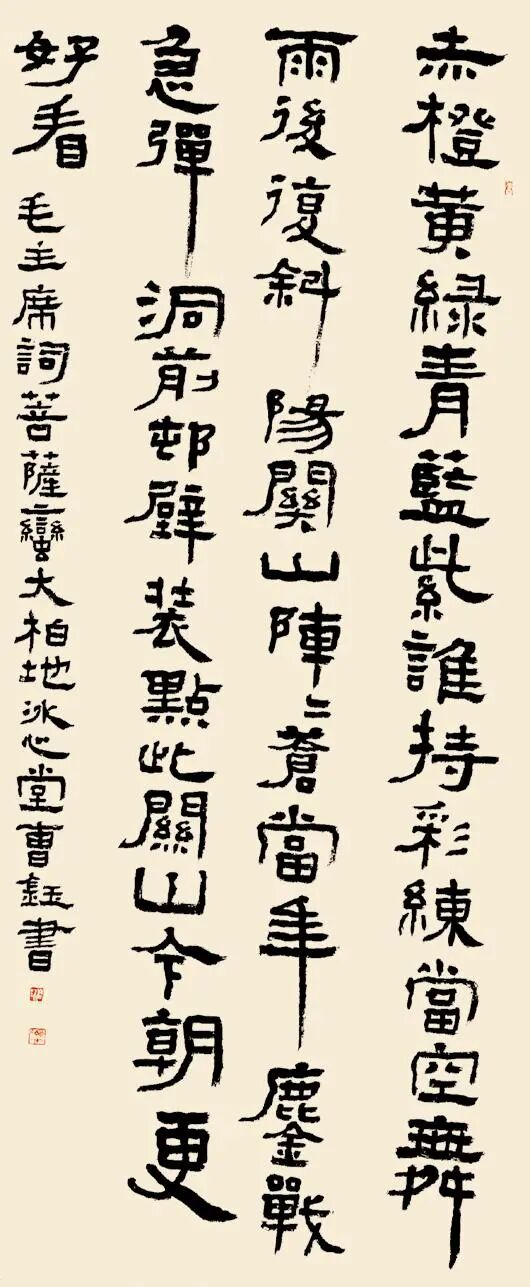 赤橙黄緑青藍紫誰持彩練當空舞
雨後復斜陽關山陣〻蒼當年鏖戰
急彈洞前邨壁装點此關山今朝更
好看 毛主席詞菩薩蠻大柏地冰心堂曹鈺書